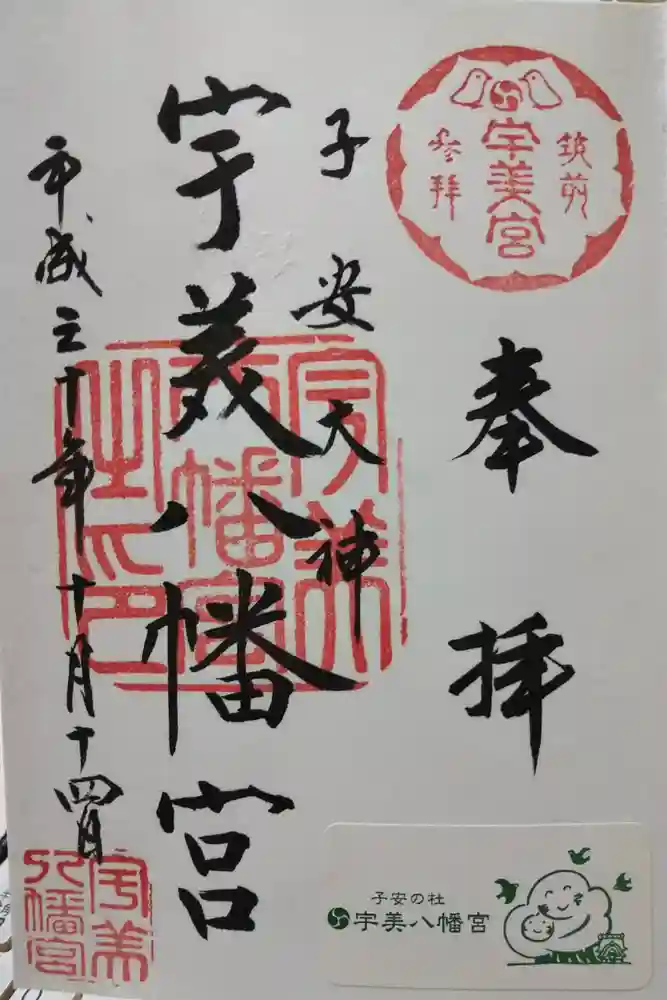 筑前
宇美宮
参拝
奉拝
子安大神
宇美八幡宮
平成三十年十月十四日
宇美
八幡宮
之印
宇美
八幡宮
子安の杜
宇美八幡宮